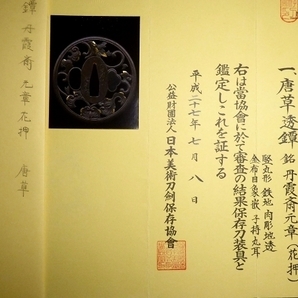 一 唐草透鐔 銘 丹霞斎元章(花押)
竪丸形 鉄地 肉彫地透
金布目象嵌 子持丸耳
右は當協會に於て審査の結果保存刀装具と
鑑定しこれを証する
平成二十七年七月八日
公益財團法人 日本美術刀劍保存協會
鐔 丹霞斎 元章 花押 唐草